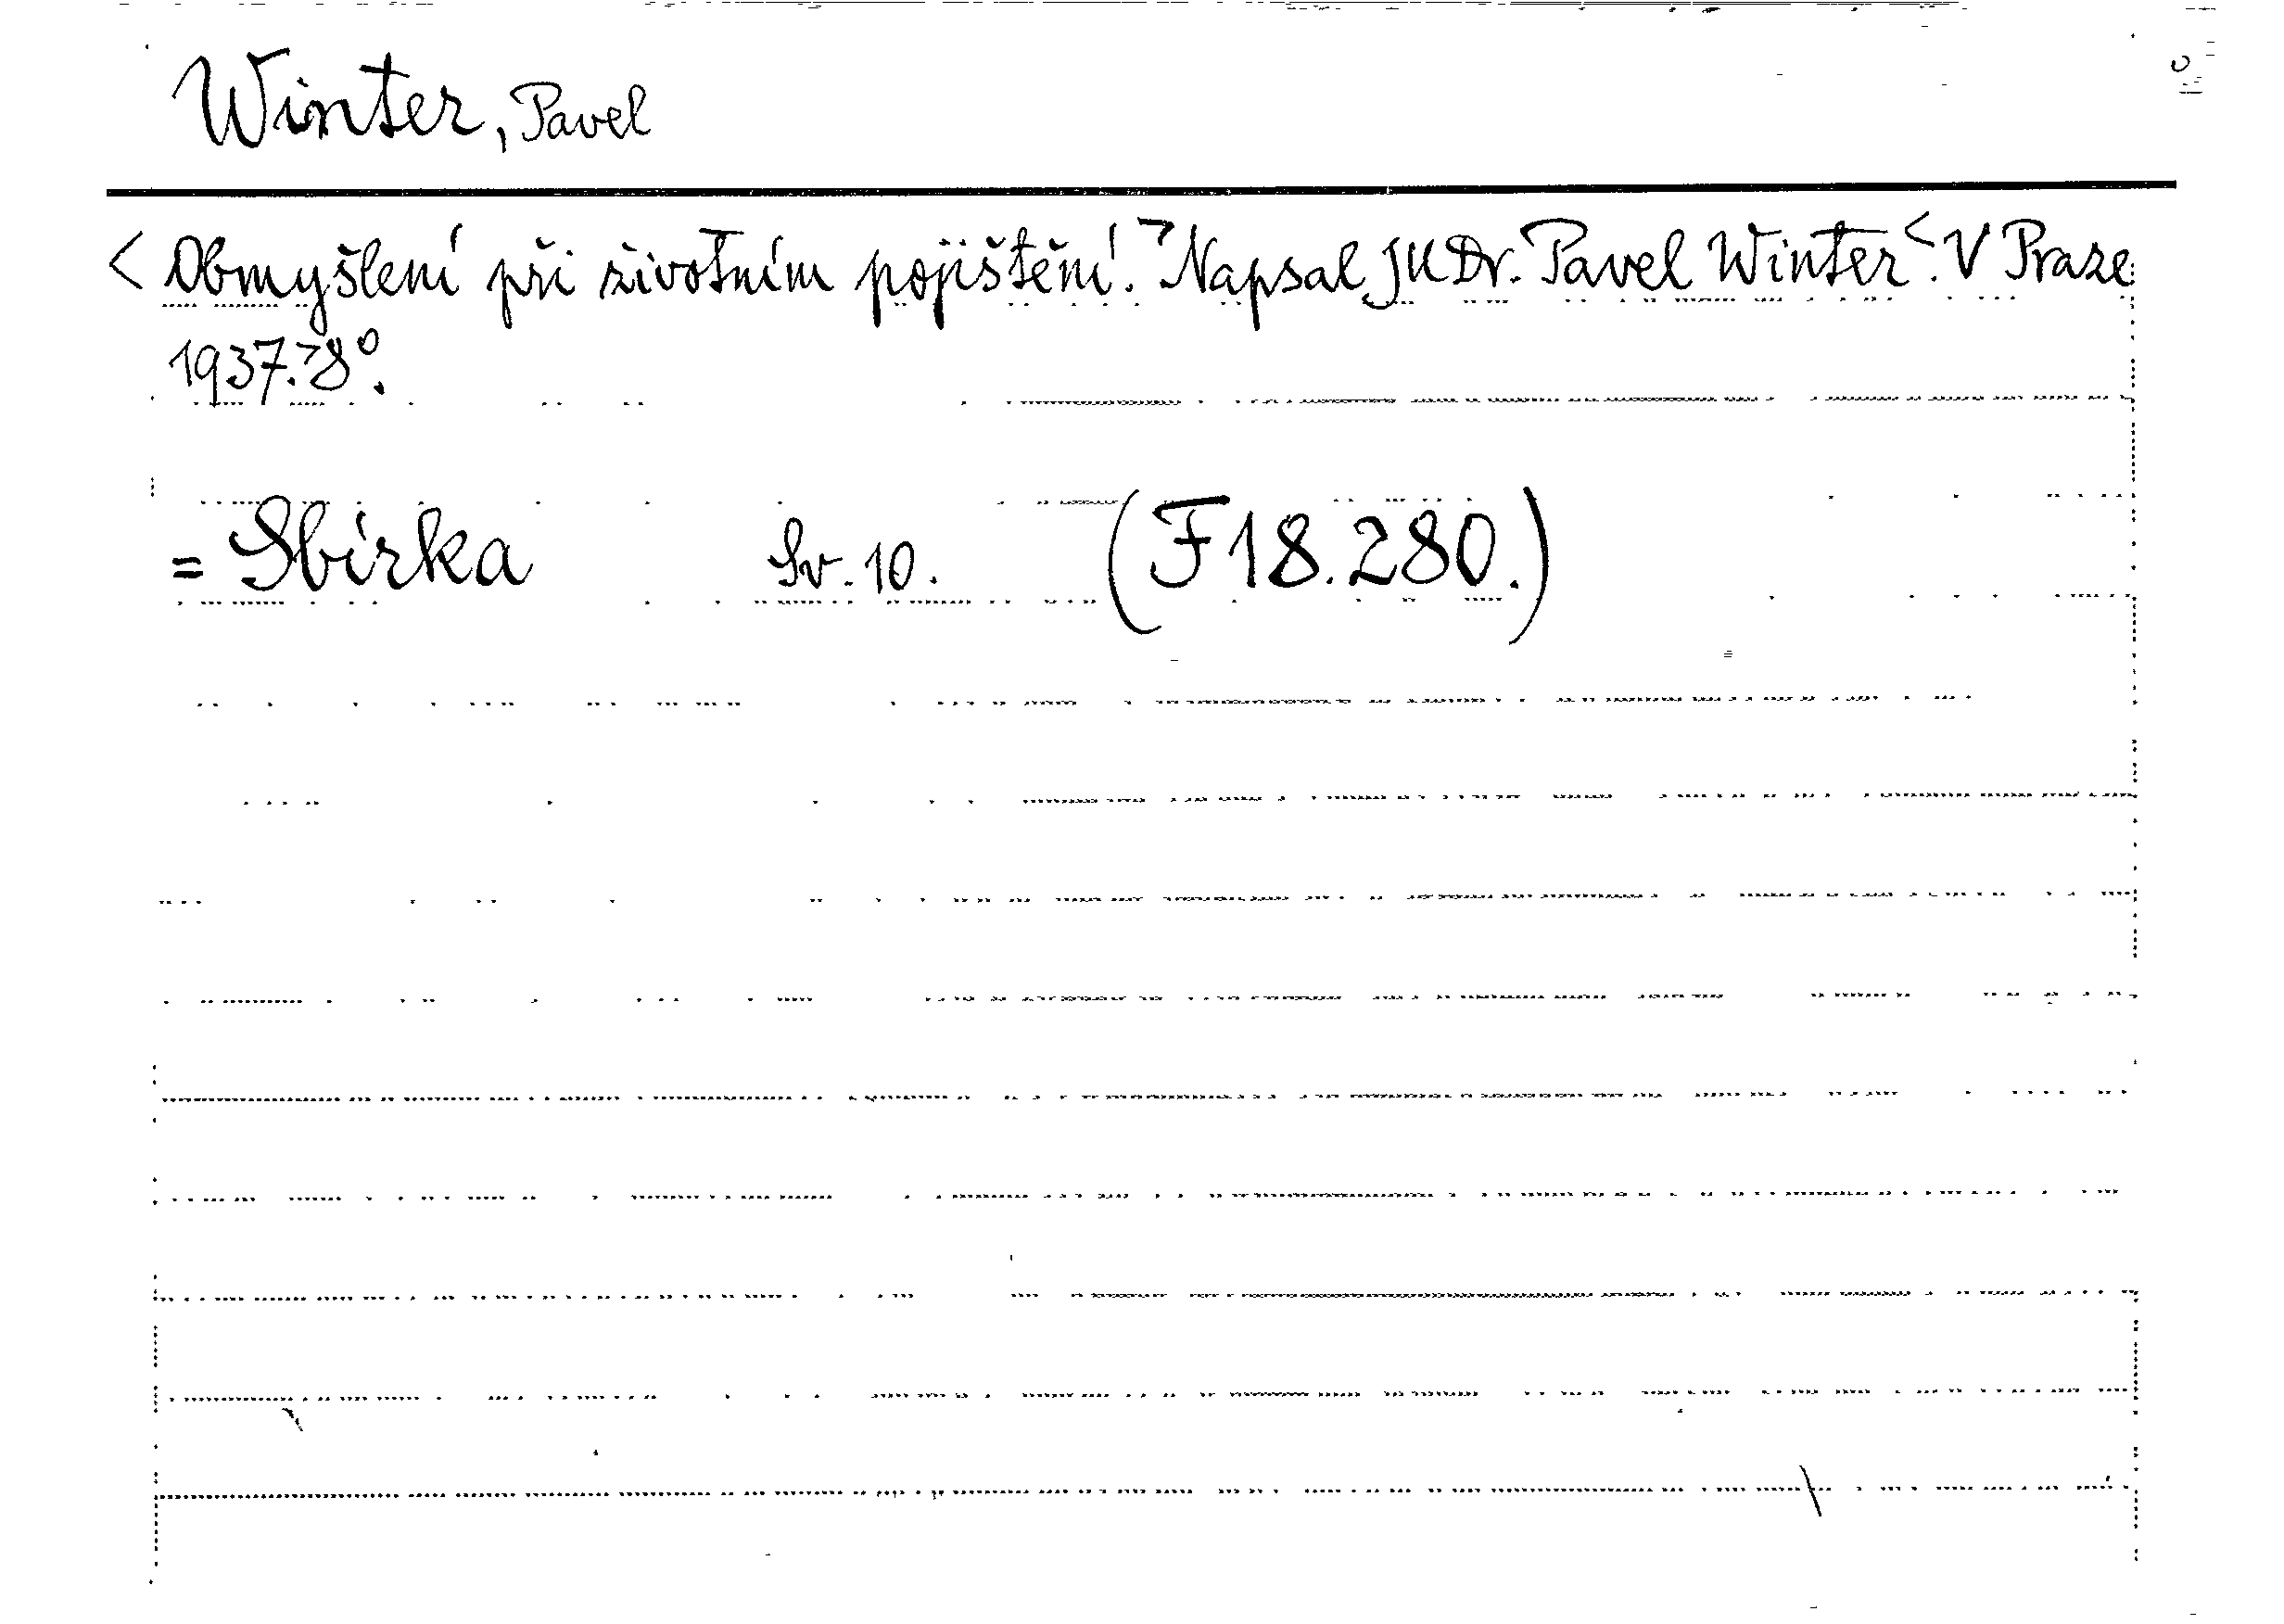 Winter, Pavel
< Obmyšlení při životním pojištění. > Napsal JUDr. Pavel Winter <. V Praze
1937. > 8°.
= Sbírka Sv. 10. (F 18.280.)